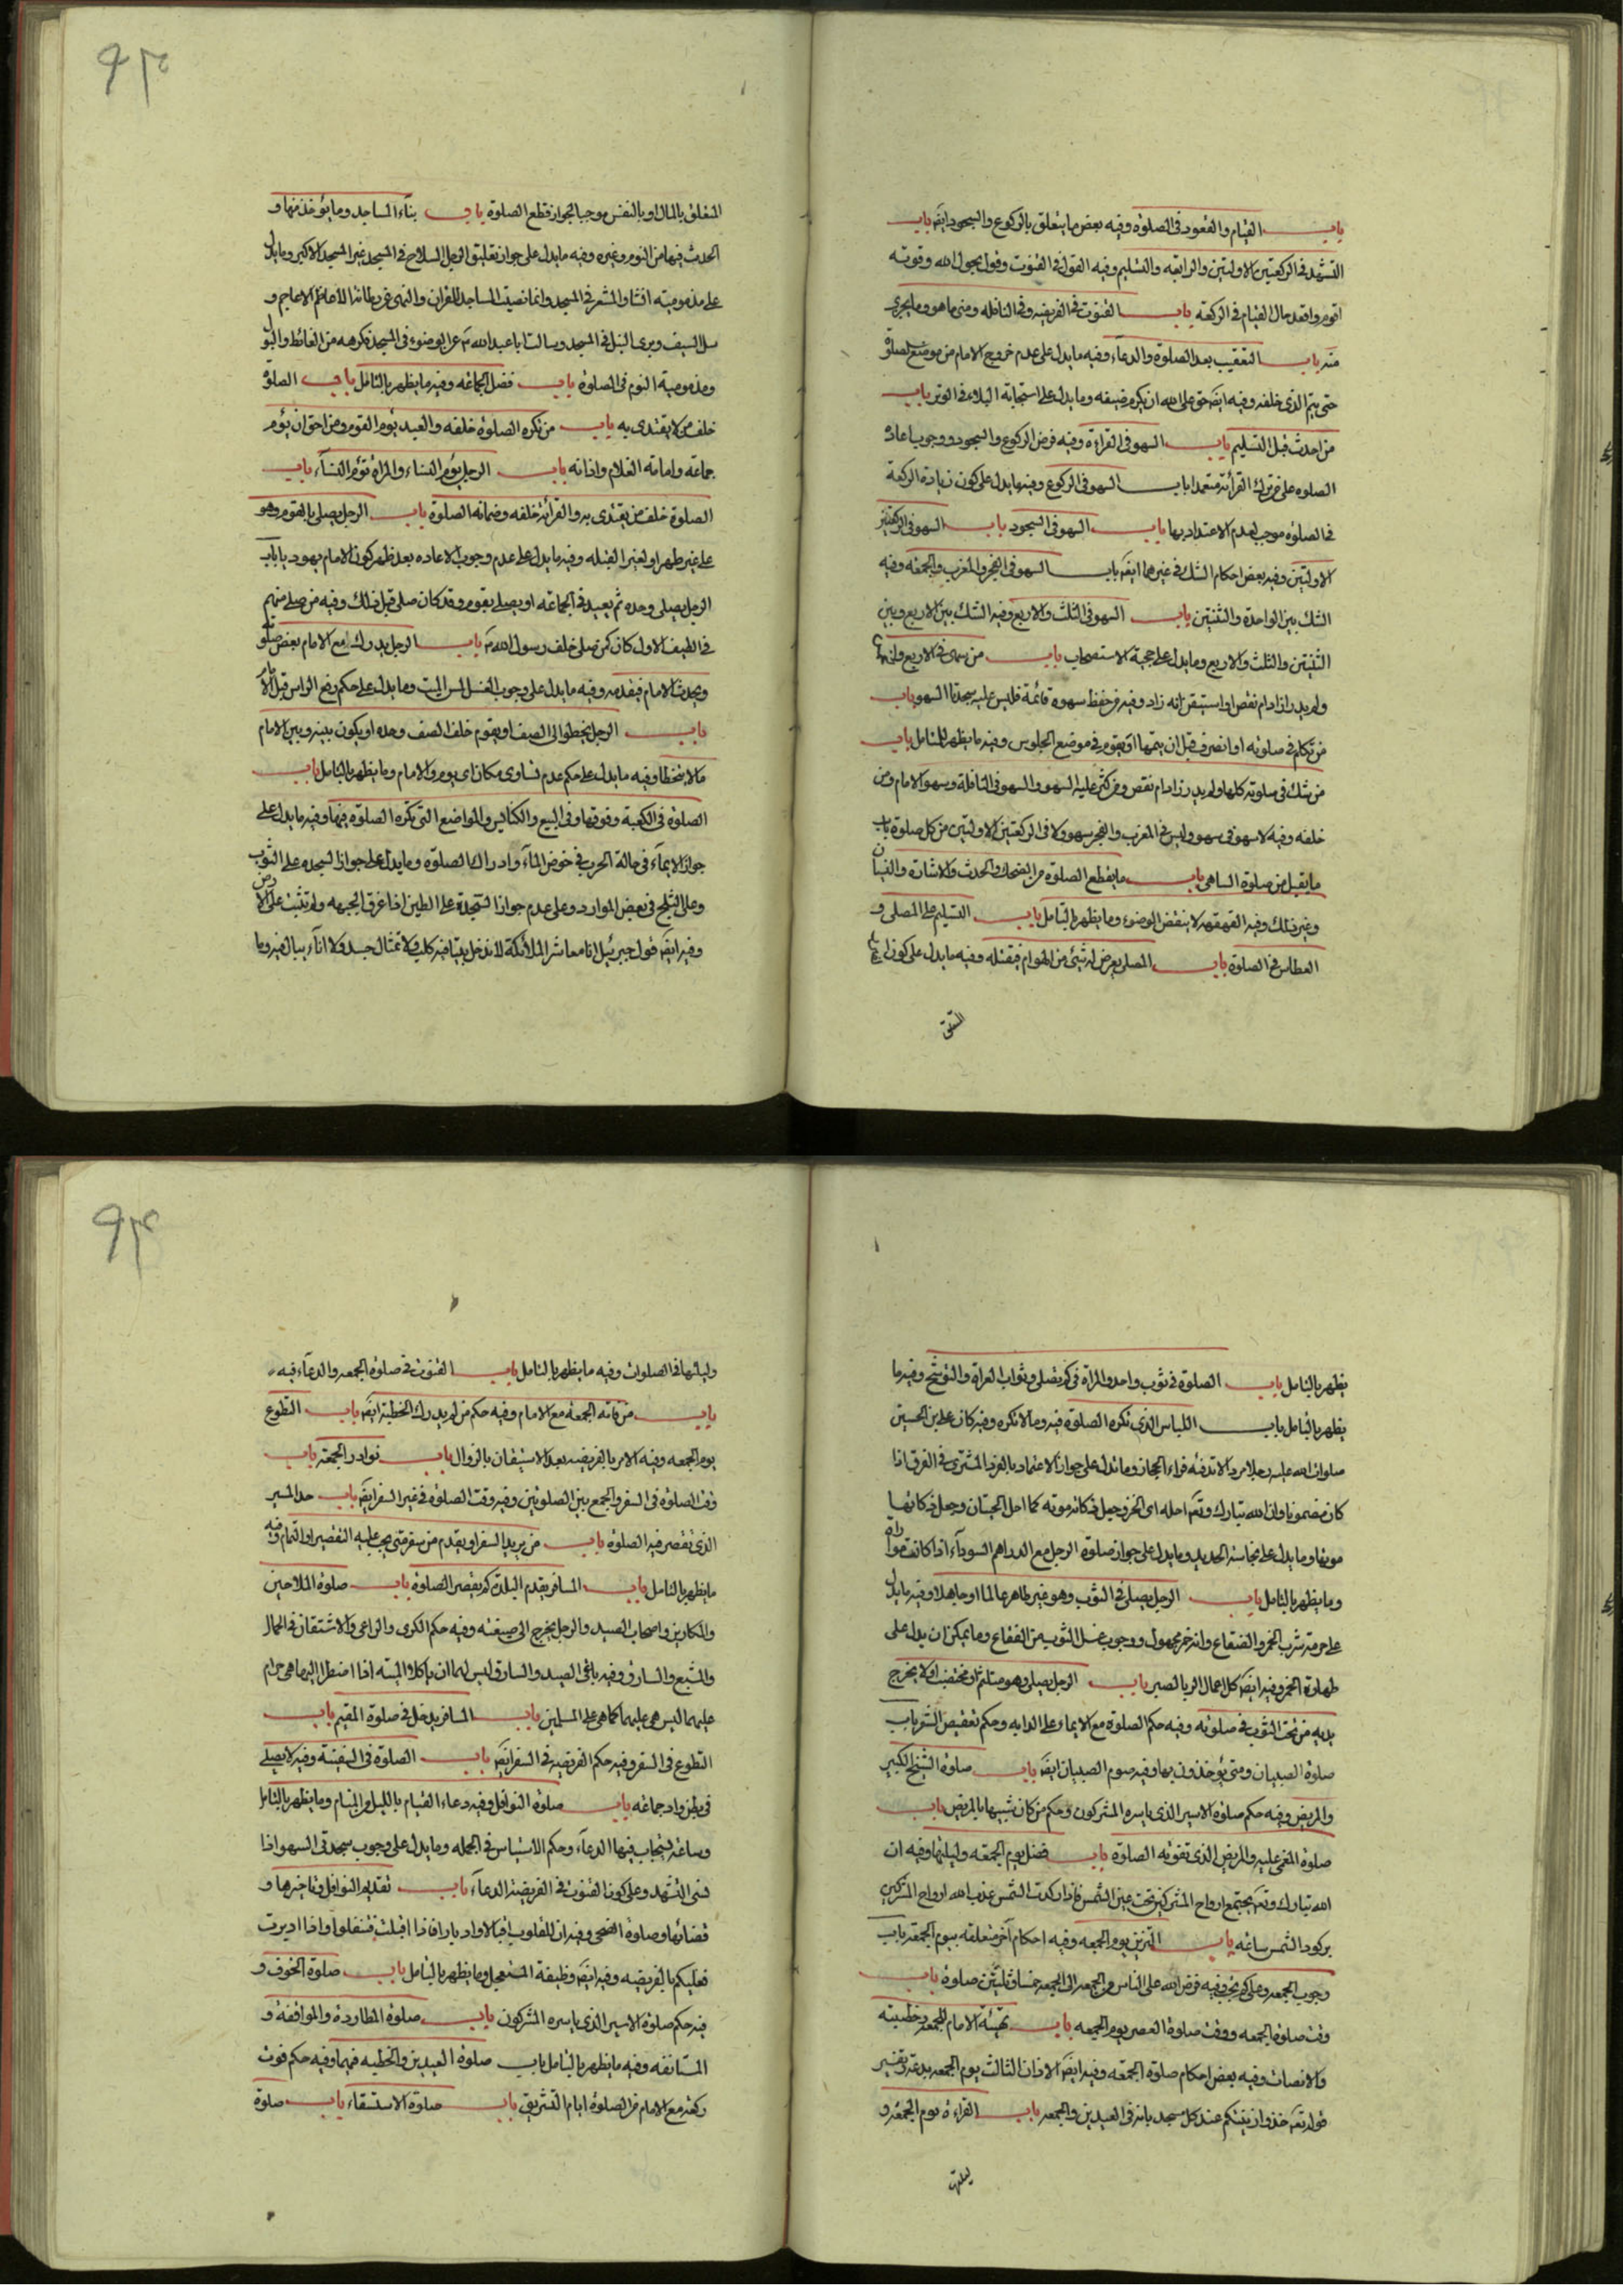 باب القيام والقعود في الصلوة وفيه بعض ما يتعلق بالركوع والسجود ايضَ باب
التشهد في الركعتين الاولتين والرابعه والتسليم وفيه القول في القنوت وقول بحول الله وقوته
اقوم واقعد حال القيام في الركعة باب القنوت في الفريضه وفي النافله ومتى ما هو وما يجزى
منه باب التعقيب بعد الصلوة والدعاء وفيه ما يدل على عدم خروج الامام من موضع الصلوة
حتى يتم الذى خلفه وفيه ايضَ حق على الله ان يكرم ضيفه وما يدل على استجابة البلاء في الوتر باب
من احدث قبل التسليم باب السهو في القراءة وفيه فرض الركوع والسجود ووجوب اعادة
الصلوه على من ترك القرائة متعمدا باب السهو في الركوع وفيها يدل على كون زيادة الركعة
في الصلوه موجب لعدم الاعتداد بها باب السهو في السجود باب السهو في الركعتين
الاولتين وفيه بعض احكام الشك في غيرهما ايضَ باب السهو في الفجر والمغرب والجمعه وفيه
الشك بين الواحدة والثنتين باب السهو في الثلث والاربع وفيه الشك بين الاربع وبين
الثنتين والثلث والاربع وما يدل على حجية الاستصحاب باب من سهى في الاربع والخمس
ولم يدر ازاد ام نقص او استيقن انه زاد وفيه من حفظ سهوه فاتمه فليس عليه سجدتا السهو باب
من تكلم في صلوته او انصرف قبل ان يتمها او يقوم في موضع الجلوس وفيه ما يظهر للمتامل باب
من شك في صلوته كلها ولم يدر زاد ام نقص ومن كثر عليه السهو والسهو في النافلة وسهو الامام ومن
خلفه وفيه لا سهو في سهو وليس في المغرب والفجر سهو ولا في الركعتين الاولتين من كل صلوة باب
ما يقبل من صلوة الساهى باب ما يقطع الصلوة من الضحك والحدث والاشارة والنسيان
وغير ذلك وفيه القهقهه لا ينقض الوضوء وما يظهر بالتامل باب التسليم على المصلى و
العطاس في الصلوة باب المصلى يعرض له شئ من الهوام فيقتله وفيه ما يدل على كون
المتعلق بالمال او بالنفس موجبا لجواز قطع الصلوة باب بناء المساجد وما يؤخذ منها و
الحدث فيها من النوم وغيره وفيه ما يدل على جواز تعليق الرجل السلاح في المسجد غير المسجد الاكبر وما يدل
على مذموميته انشاد الشعر في المسجد وانما نصبت المساجد للقران والنهى عن رطانة الاعاجم و
سل السيف وبرى النبل في المسجد وسالت ابا عبد الله عَ عن الوضوء في المسجد فكرهه من الغائط والبول
ومذمومية النوم في الصلوة باب فضل الجماعه وفيه ما يظهر بالتامل باب الصلوة
خلف من لا يقتدى به باب من تكره الصلوة خلفه والعبد يؤم القوم ومن احق ان يؤم
جماعة وامامة الغلام واذانه باب الرجل يؤم النساء والمراة تؤم النساء باب
الصلوة خلف من يقتدى به والقرائة خلفه وضمانه الصلوة باب الرجل يصلى بالقوم وهو
على غير طهر او لغير القبله وفيه ما يدل على عدم وجوب الاعاده بعد ظهر كون الامام يهوديا باب
الرجل يصلى وحده ثم يعيد في الجماعه او يصلى بقوم وقد كان صلى قبل ذلك وفيه من صلى منهم
في الصف الاول كان كمن صلى خلف رسول الله صَ باب الرجل يدرك مع الامام بعض صلوته
ويحدث الامام فيقدمه وفيه ما يدل على وجوب الغسل لمس الميت وما يدل على حكم رفع الراس قبل الامام
باب الرجل يخطو الى الصف او يقوم خلف الصف وحده او يكون بينه وبين الامام
ما لا يتخطا وفيه ما يدل على حكم عدم تساوى مكان الماموم والامام وما يظهر بالتامل باب
الصلوة في الكعبة وفوقها وفي البيع والكنائس والمواضع التى تكره الصلوة فيها وفيه ما يدل على
جواز الايماء في حالة الحرب في خوض الماء وادراك الصلوة وما يدل على جواز السجده على الثوب
وعلى الثلج في بعض الموارد وعلى عدم جواز السجدة على الطين اذا غرق الجبهه ولم تثبت على الارض
وفيه ايضَ قول جبرئيل انا معاشر الملائكة لا ندخل بيتا فيه كلب ولا تمثال جسد ولا اناء يبال فيه وما
يظهر بالتامل باب الصلوة في ثوب واحد والمراة في كم يصلى وثواب العراة والتوشح وفيه ما
يظهر بالتامل باب اللباس الذى تكره الصلوة فيه وما لا تكره وفيه كان على بن الحسين
صلوات الله عليه رجلا صردا لا تدفئه فراء الحجاز وما تدل على جواز الاعتماد بالفرد المشترى في الفرق اذا
كان مضمونا وان الله تبارك وتعَ احله اى الخز وجعل ذكاته موته كما احل الحيتان وجعل ذكاتها
موتها وما يدل على نجاسة الحديد وما يدل على جواز صلوة الرجل مع الدراهم السوداء اذا كانت مواراة
وما يظهر بالتامل باب الرجل يصلى في الثوب وهو غير طاهر عالما او جاهلا وفيه ما يدل
على حرمة شرب الخمر والفقاع وانه خمر مجهول ووجوب غسل الثوب من الفقاع وما يمكن ان يدل على
طهارة الخمر وفيه ايضَ كل اعمال البر بالصبر باب الرجل يصلى وهو متلثم او مختضب او لا يخرج
يديه من تحت الثوب في صلوته وفيه حكم الصلوة مع الايماء وعلى الدابه وحكم تعقيص الشعر باب
صلوة الصبيان ومتى يؤخذون بها وفيه صوم الصبيان ايضَ باب صلوة الشيخ الكبير
والمريض وفيه حكم صلوة الاسير الذى ياسره المشركون وحكم من كان شبيها بالمريض باب
صلوة المغمى عليه والمريض الذى تفوته الصلوة باب فضل يوم الجمعه وليلتها وفيه ان
الله تبارك وتعَ يجتمع ارواح المشركين تحت عين الشمس فاذا ركدت الشمس عذب الله ارواح المشركين
بركود الشمس ساعة باب التزين يوم الجمعه وفيه احكام آخر متعلقه بيوم الجمعه باب
وجوب الجمعه وعلى كم تجب وفيه فرض الله على الناس من الجمعه الى الجمعه خمسا وثلثين صلوة باب
وقت صلوة الجمعه ووقت صلوة العصر يوم الجمعه باب تهيئة الامام للجمعه وخطبته
والانصات وفيه بعض احكام صلوة الجمعه وفيه ايضَ الاذان الثالث يوم الجمعه بدعة وتفسير
قوله تعَ خذوا زينتكم عند كل مسجد بانه في العيدين والجمعه باب القراءة يوم الجمعة و
ليلتها
وليلتها في الصلوات وفيه ما يظهر بالتامل باب القنوت في صلوة الجمعه والدعاء فيه
باب من فاته الجمعه مع الامام وفيه حكم من لم يدرك الخطبة ايضَ باب التطوع
يوم الجمعه وفيه الامر بالفريضه بعد الاستيقان بالزوال باب نوادر الجمعة باب
وقت الصلوة في السفر والجمع بين الصلوتين وفيه وقت الصلوة في غير السفر ايضَ باب حد المسير
الذى تقصر فيه الصلوة باب من يريد السفر او يقدم من سفر متى يجب عليه التقصير او التمام وفيه
ما يظهر بالتامل باب المسافر يقدم البلدة كم يقصر الصلوة باب صلوة الملاحين
والمكارين واصحاب الصيد والرجل يخرج الى ضيعته وفيه حكم الكرى والراعى والاشتقان في الحال
والتتبع والسارق وفيه باغى الصيد والسارق ليس لهما ان ياكلا الميتة اذا اضطرا اليها هى حرام
عليهما ليس هى عليهما كما هى على المسلمين باب المسافر يدخل في صلوة المقيم باب
التطوع في السفر وفيه حكم الفريضه في السفر ايضَ باب الصلوة في السفينة وفيه لا يصلى
في بطن واد جماعه باب صلوة النوافل وفيه دعاء القيام بالليل من المنام وما يظهر بالتامل
وساعة يستجاب فيها الدعاء وحكم الالتباس في الجمله وما يدل على وجوب سجدتى السهو اذا
نسى التشهد وعلى كون القنوت في الفريضة الدعاء باب تقديم النوافل وتاخيرها و
قضائها وصلوة الضحى وفيه ان للقلوب اقبالا وادبارا فاذا اقبلت فتنفلوا واذا ادبرت
فعليكم بالفريضه وفيه ايضَ وظيفة المستعجل وما يظهر بالتامل باب صلوة الخوف و
فيه حكم صلوة الاسير الذى ياسره المشركون باب صلوة المطاردة والمواقفة و
المسايفه وفيه ما يظهر بالتامل باب صلوة العيدين والخطبه فيهما وفيه حكم فوت
ركعة مع الامام من الصلوة ايام التشريق باب صلوة الاستسقاء باب صلوة